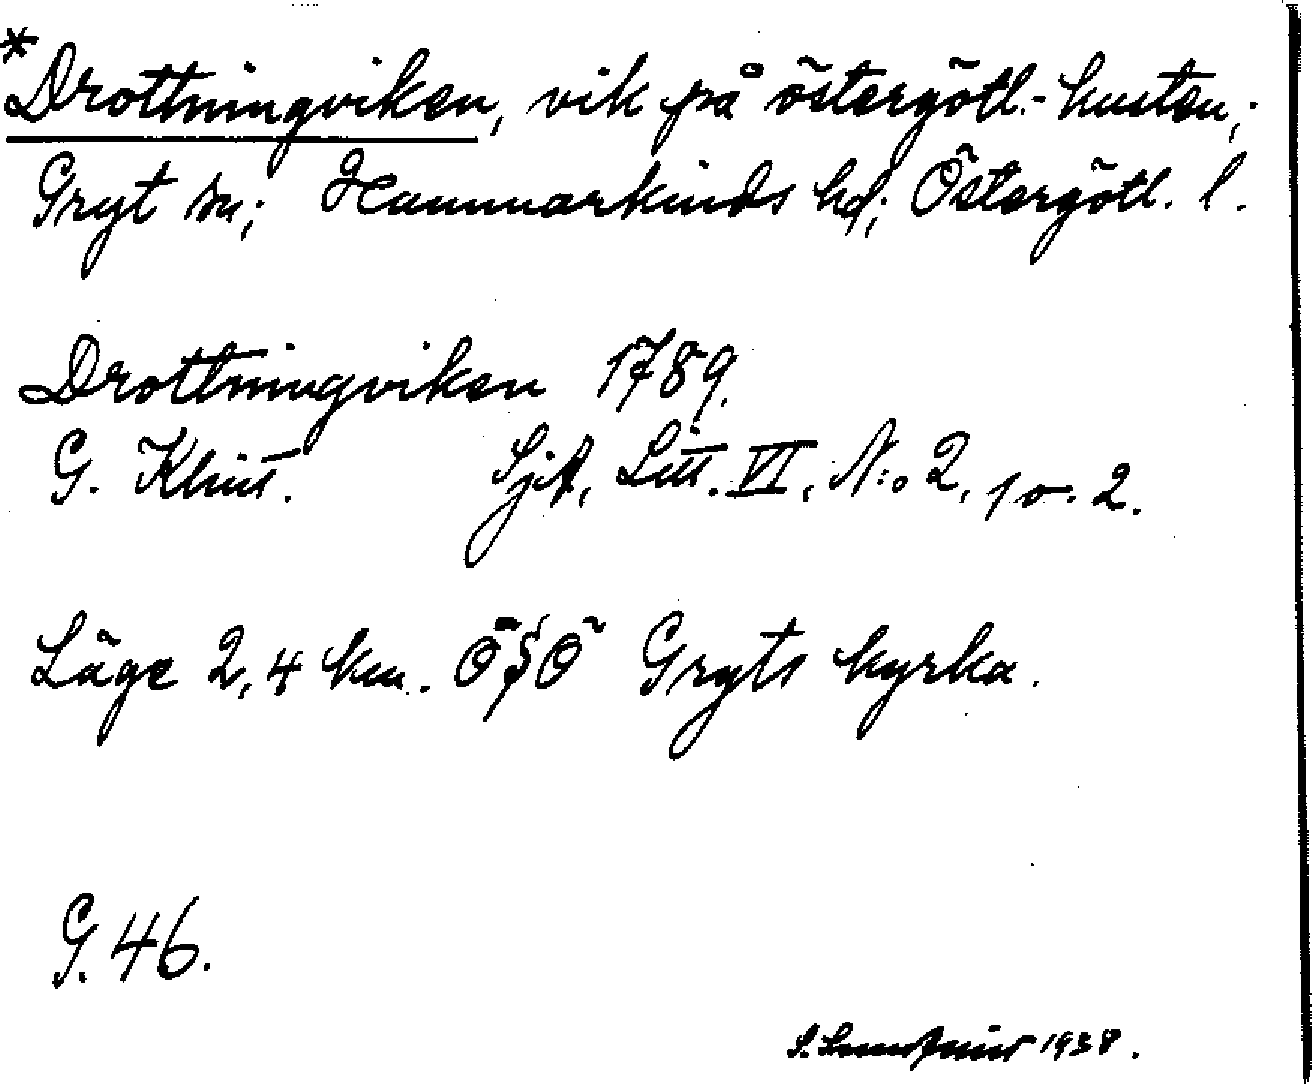 *Drottningviken, vik på östergötl.-kusten,;
Gryt sn; Hammarkinds hd; Östergötl. l.
Drottningviken 1789.
G. Klint. SjA, Litt. VI, N:o 2, 1 o. 2.
Läge 2,4 km. ÖSÖ Gryts kyrka.
G. 46.
1938.